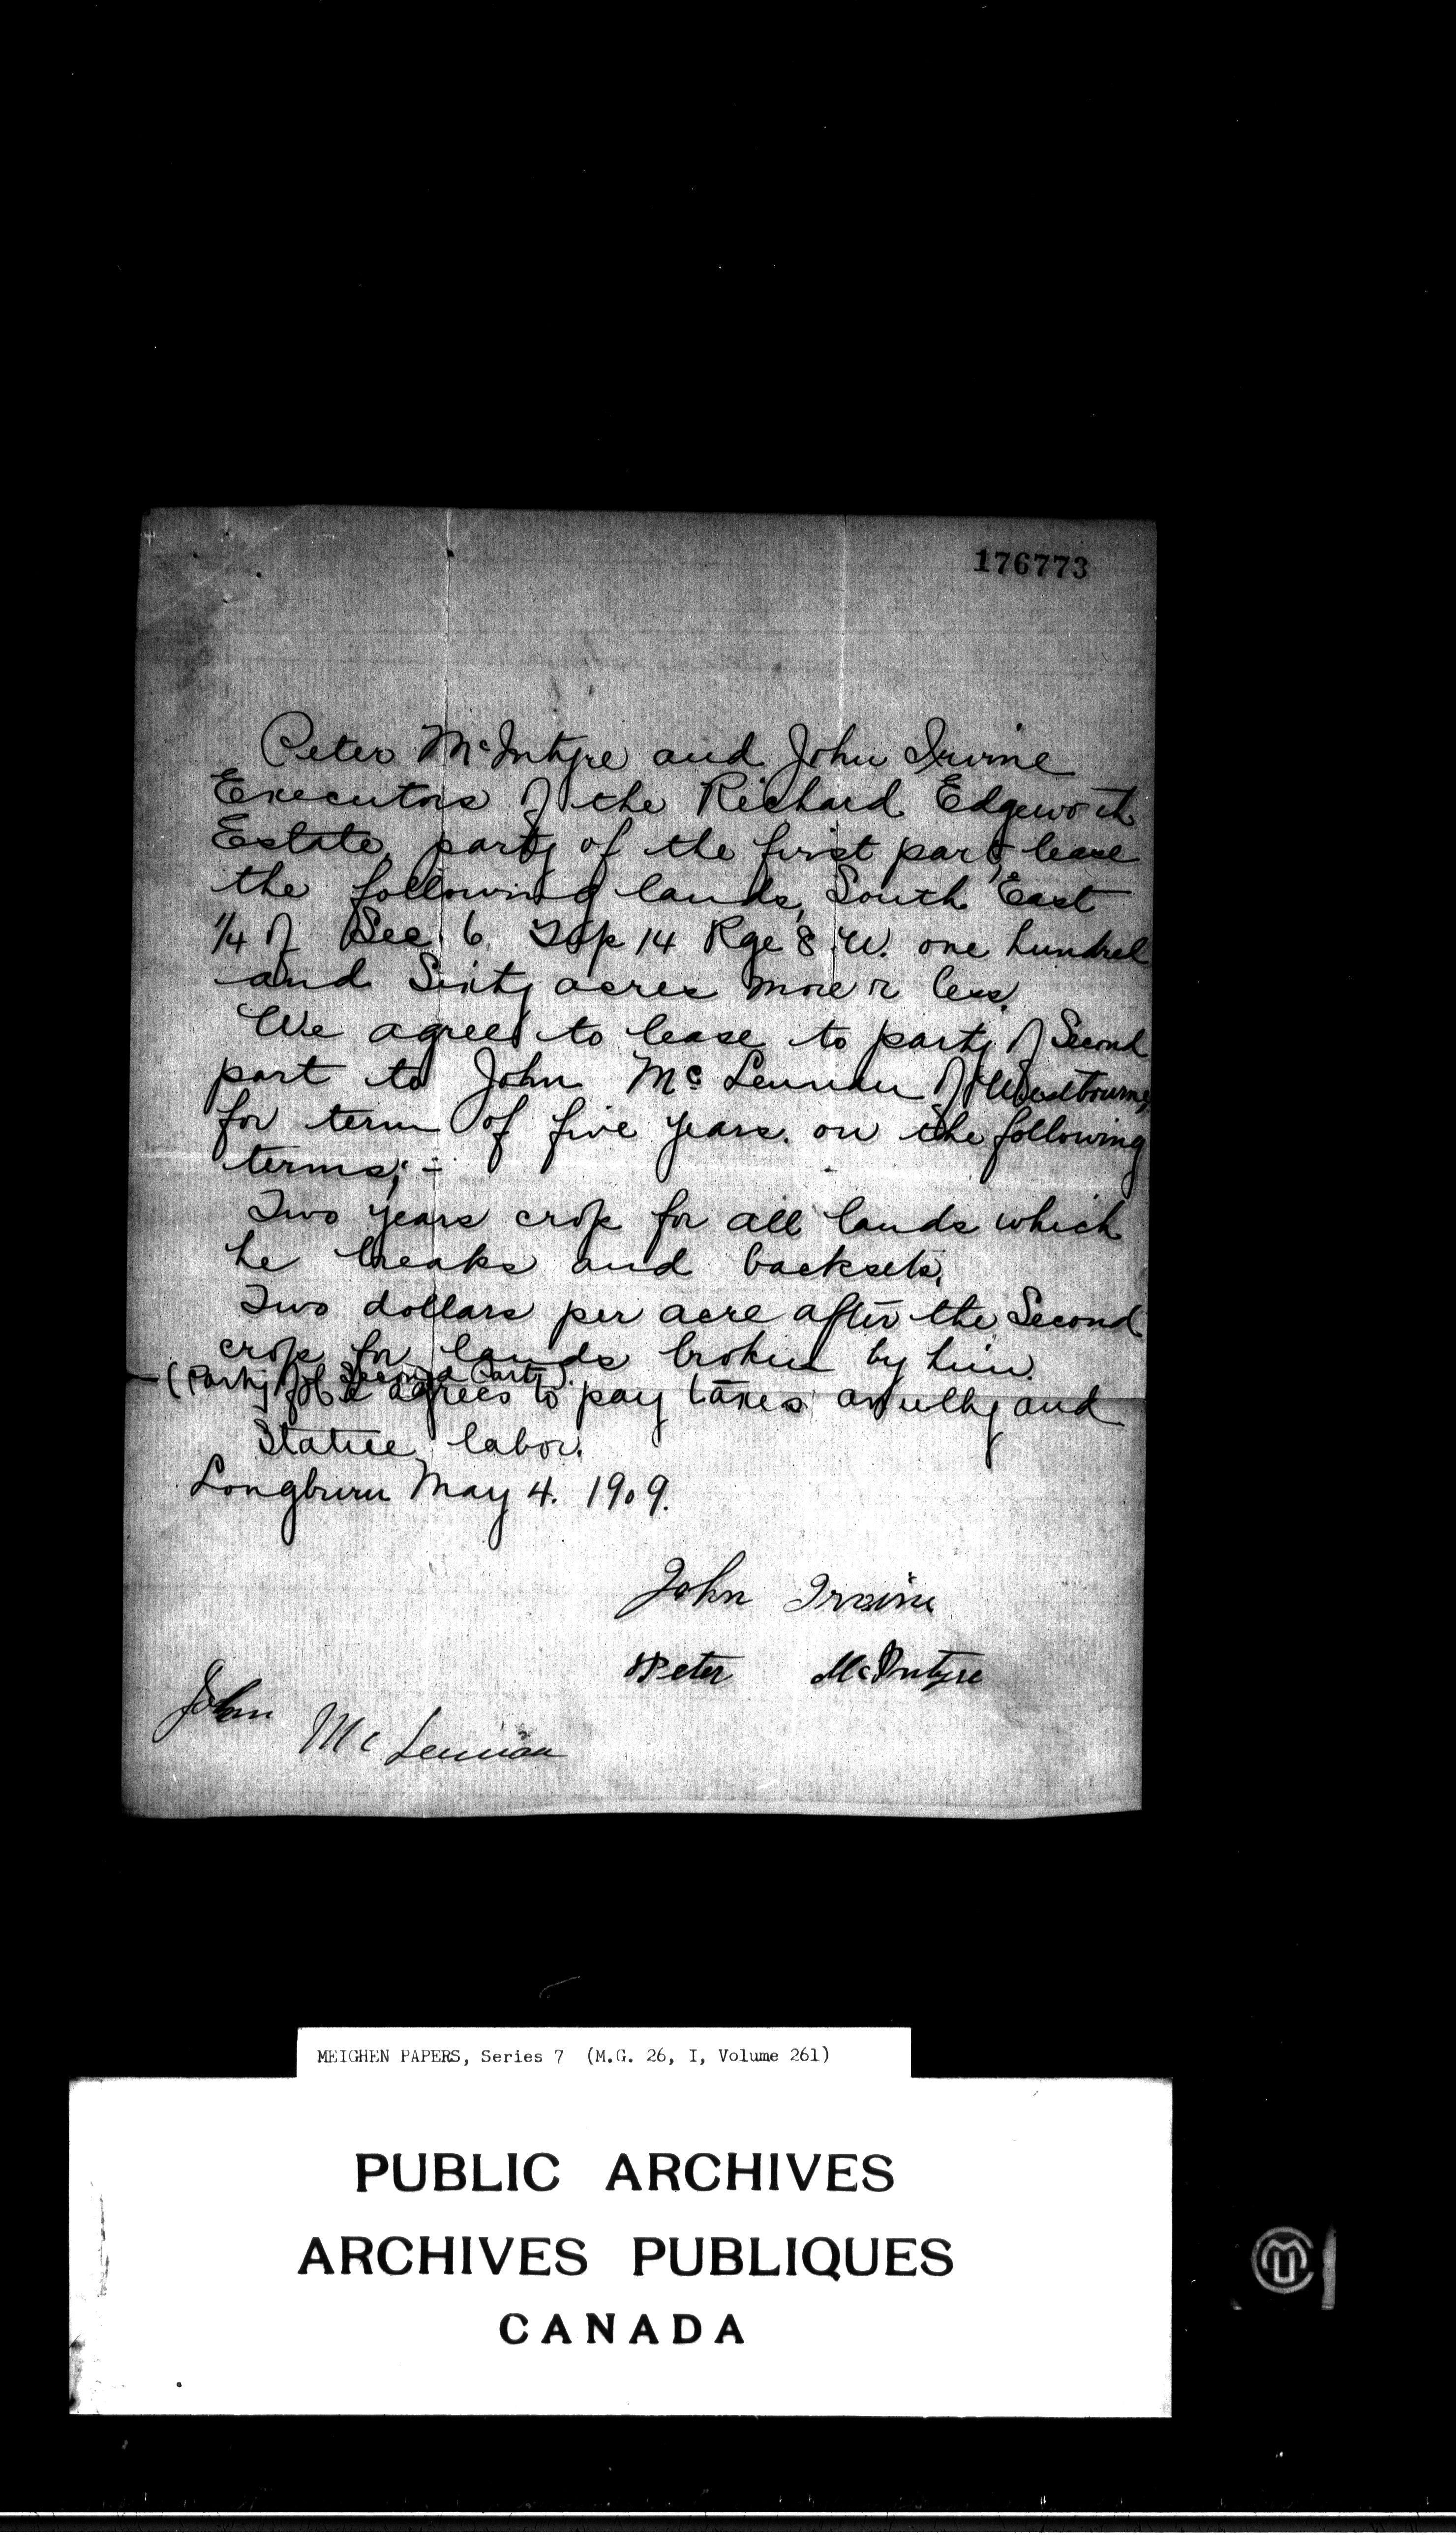 176773
Peter McIntyre and John Irvine
Executors of the Richard Edgeworth
Estate, party of the first part, lease
the following lands, South East
1/4 of Sec. 6. Tsp 14 Rge 8 W. one hundred
and Sixty acres more or less.
We agree to lease to party of Second
part to John McLennan of Westbourne
for term of five years. on the following
terms; -
Two years crop for all lands which
he breaks and backsets.
Two dollars per acre after the Second
crop for lands broken by him.
(Party of Second Part).
agrees to pay taxes anully and
Statue labor.
Longburn May 4. 1909.
John Irvine
Peter McIntyre
John McLennan
MEIGHEN PAPERS, Series 7 (M.G. 26, I, Volume 261)
PUBLIC ARCHIVES
ARCHIVES PUBLIQUES
CANADA